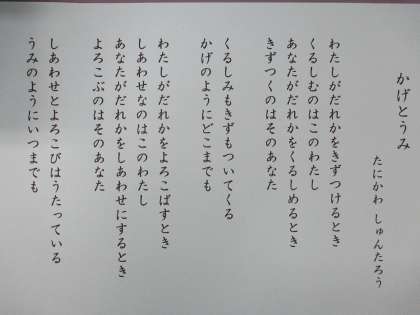 かげとうみ
たにかわ しゅんたろう
わたしがだれかをきずつけるとき
くるしむのはこのわたし
あなたがだれかをくるしめるとき
きずつくのはそのあなた
くるしみもきずもついてくる
かげのようにどこまでも
わたしがだれかをよろこばすとき
しあわせなのはこのわたし
あなたがだれかをしあわせにするとき
よろこぶのはそのあなた
しあわせとよろこびはうたっている
うみのようにいつまでも